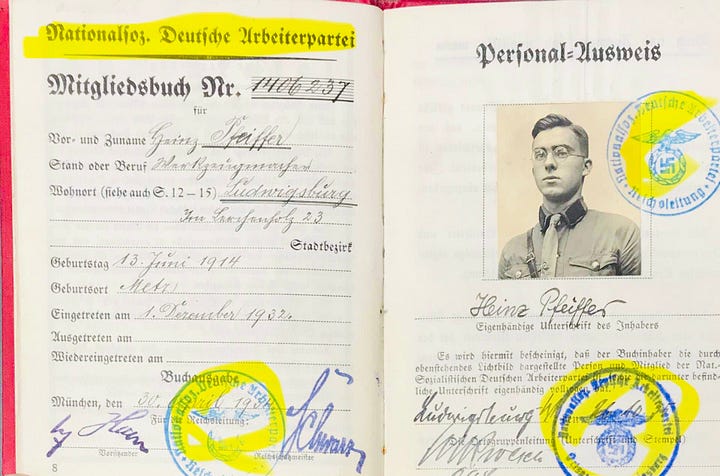 Nationalsoz. Deutsche Arbeiterpartei
Mitgliedsbuch Nr. 1406237
für
Vor- und Zuname Heinz Pfeiffer
Stand oder Beruf Werkzeugmacher
Wohnort (siehe auch S. 12–15) Ludwigsburg
Im Lerchenholz 23
Stadtbezirk
Geburtstag 13. Juni 1914
Geburtsort Metz
Eingetreten am 1. Dezember 1932.
Ausgetreten am
Wiedereingetreten am
Buchausgabe:
München, den 30. April
Für die Reichsleitung:
Schwarz
Vorsitzender
Reichsschatzmeister
8
Personal-Ausweis
Nationalsoz. Deutsche Arbeiterpartei
Reichsleitung
Heinz Pfeiffer
Eigenhändige Unterschrift des Inhabers
Es wird hiermit bescheinigt, daß der Buchinhaber die durch
obenstehendes Lichtbild dargestellte Person und Mitglied der Nat.-
Sozialistischen Deutschen Arbeiterpartei
liche Unterschrift eigenhändig vollzogen
Ludwigsburg
(Unterschrift und Stempel)